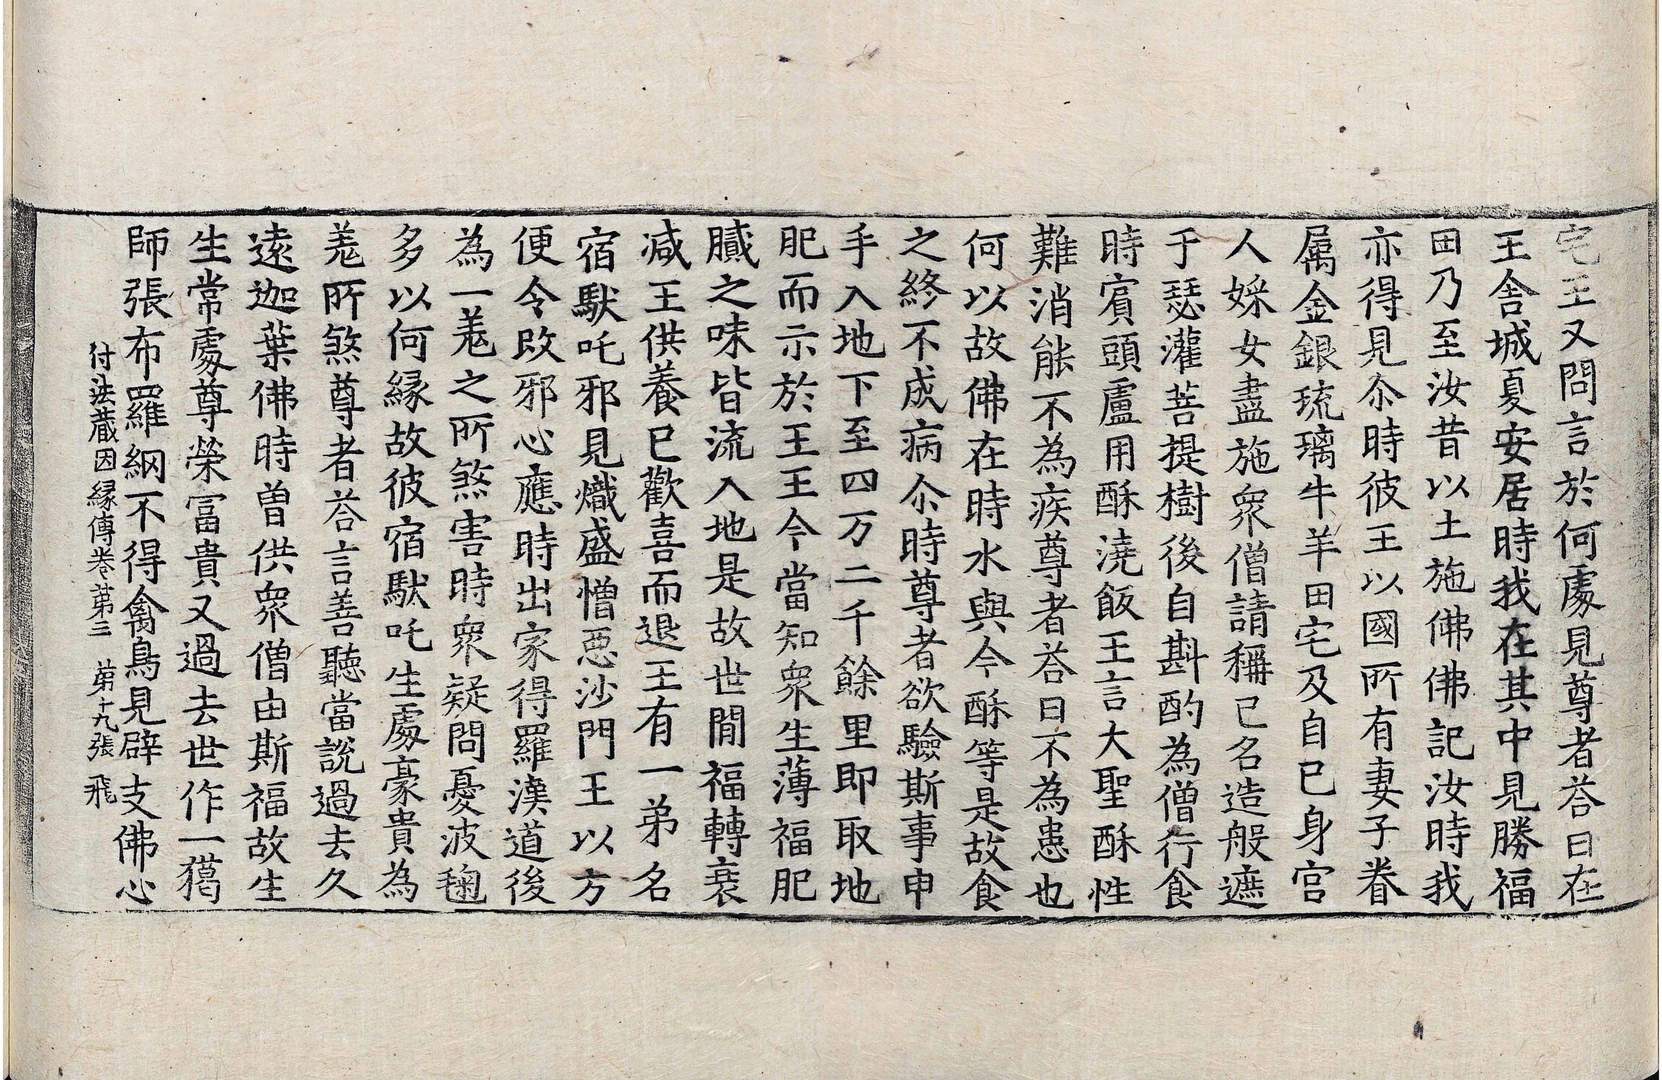 宅王又問言於何處見尊者荅曰在
王舎城夏安居時我在其中見勝福
田乃至汝昔以土施佛佛記汝時我
亦得見尒時彼王以國所有妻子眷
属金銀琉璃牛羊田宅及自己身宫
人婇女盡施衆僧請稱己名造般遮
于瑟灌菩提樹後自斟酌為僧行食
時賔頭盧用酥澆飯王言大聖酥性
難消能不為疾尊者荅曰不為患也
何以故佛在時水與今酥等是故食
之終不成病尒時尊者欲驗斯事申
手入地下至四万二千餘里即取地
肥而示於王王今當知衆生薄福肥
膩之味皆流入地是故世間福轉衰
减王供養已歡喜而退王有一弟名
宿馱吒邪見熾盛憎惡沙門王以方
便令改邪心應時出家得羅漢道後
為一㹸之所煞害時衆疑問憂波毱
多以何緣故彼宿馱吒生處豪貴為
㹸所煞尊者荅言善聽當說過去久
遠迦葉佛時曽供衆僧由斯福故生
生常處尊榮冨貴又過去世作一獦
師張布羅綱不得禽鳥見辟支佛心
付法藏因緣傳卷第三　第十九張　飛